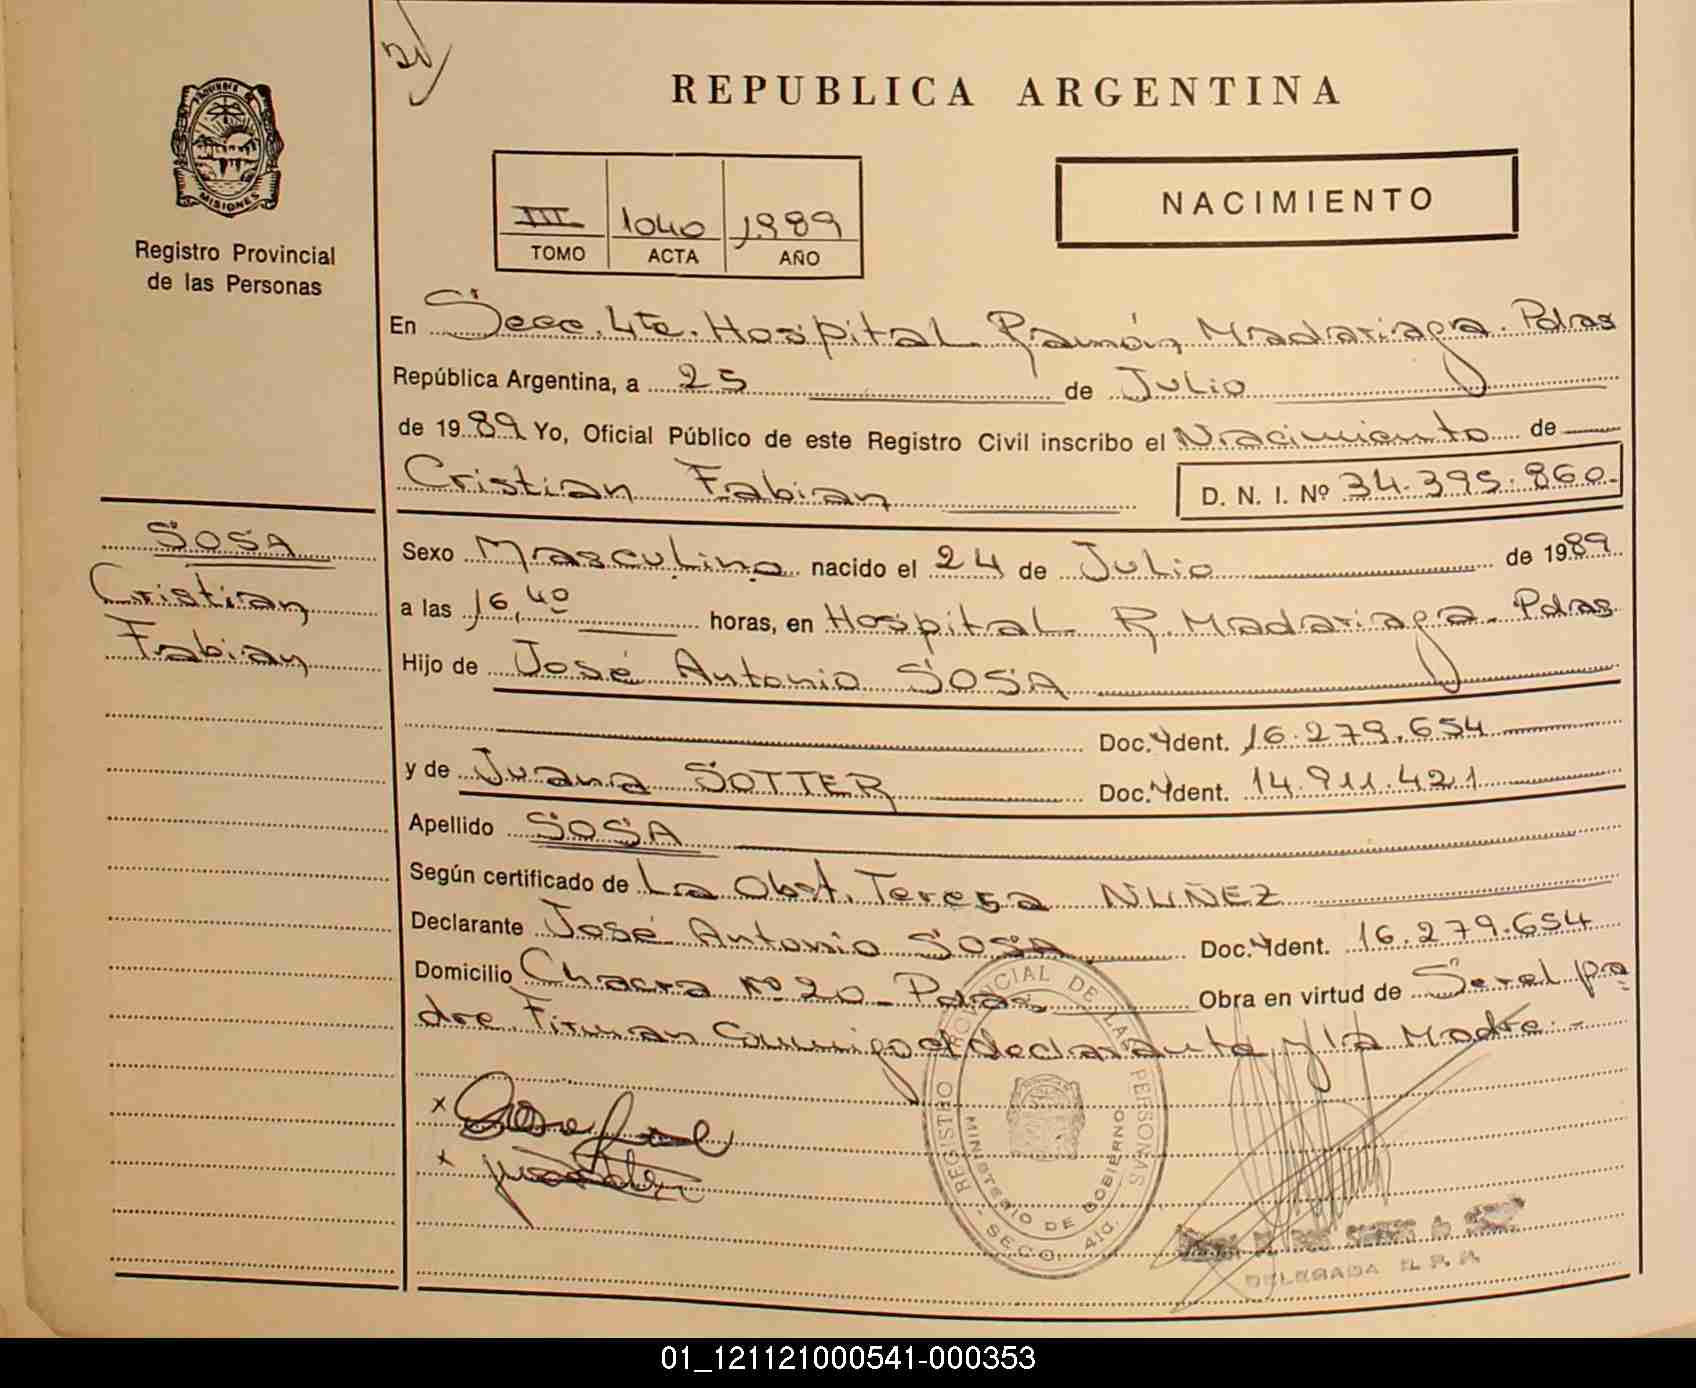 REPUBLICA ARGENTINA
MISIONES
Registro Provincial
de las Personas
III 1040 1989
TOMO ACTA AÑO
NACIMIENTO
En Secc. 4ta. Hospital Ramón Madariaga. Pdas
República Argentina, a 25 de Julio
de 1989 Yo, Oficial Público de este Registro Civil inscribo el Nacimiento de
Cristian Fabian
D. N. I. Nº 34.395.860.-
SOSA
Cristian
Fabian
Sexo Masculino nacido el 24 de Julio de 1989
a las 16,40 horas, en Hospital R. Madariaga. Pdas
Hijo de José Antonio SOSA
Doc. Ident. 16.279.654
y de Juana SOTTER Doc. Ident. 14.911.421
Apellido SOSA
Según certificado de La Obst. Teresa NUÑEZ
Declarante José Antonio SOSA Doc. Ident. 16.279.654
Domicilio Chacra Nº 20 - Pdas Obra en virtud de Ser el pa
dre. Firman Conmigo el declarante y la Madre.-
REGISTRO PROVINCIAL DE LAS PERSONAS
MINISTERIO DE GOBIERNO
- SECC. 4ta. -
DELEGADA R. P. P.
01_121121000541-000353